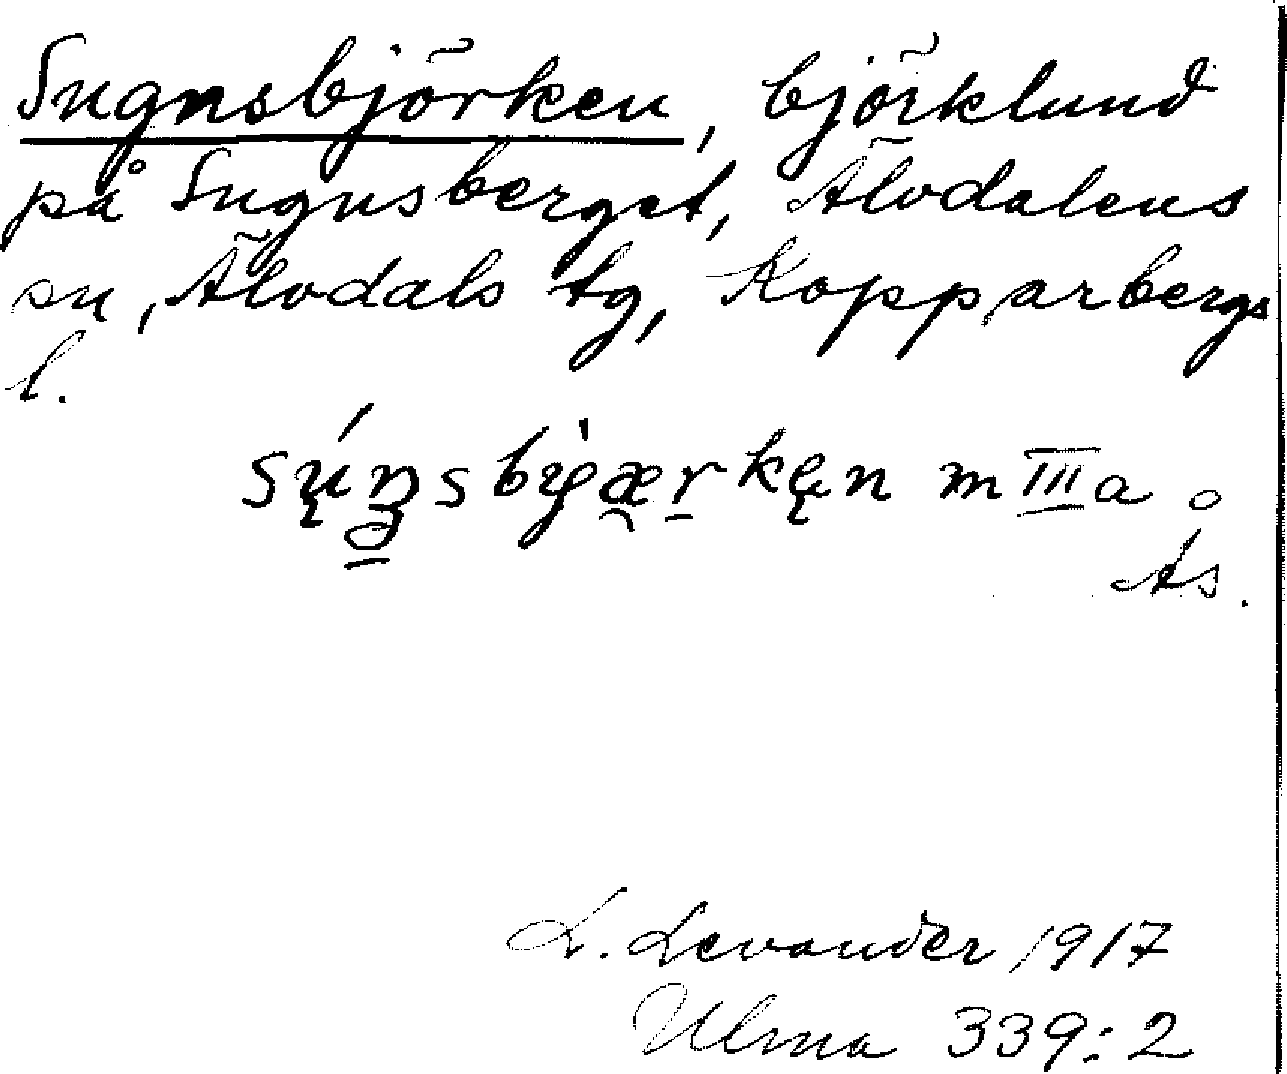 Sugnsbjörken, björklund
på Sugnsberget, Älvdalens
sn, Älvdals tg, Kopparbergs
l.
m III a.
Ås.
L. Levander 1917
Ulma 339:2